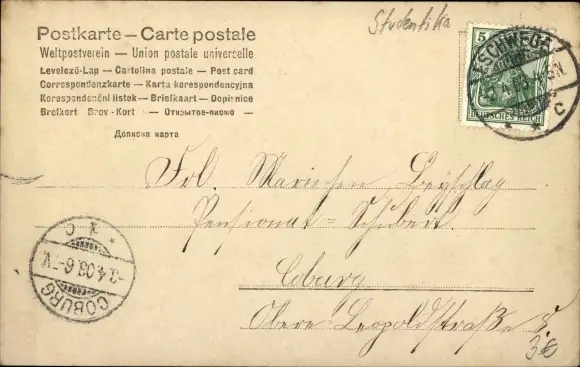 Studentika
Postkarte — Carte postale
Weltpostverein — Union postale universelle
Levelező-Lap — Cartolina postale — Post card
Correspondenzkarte — Karta korespondencyjna
Korespondenční lístek — Briefkaart — Dopisnice
Brefkort Brev-Kort — Открытое письмо —
Дописна карта
5
ESCHWEGE
C
DEUTSCHES REICH
Frl. Mariechen Beyschlag
Pensionat = Schubert.
Coburg
Obere Leopoldstraße 5.
* 1 C *
-3.4.03.6-7V.
COBURG